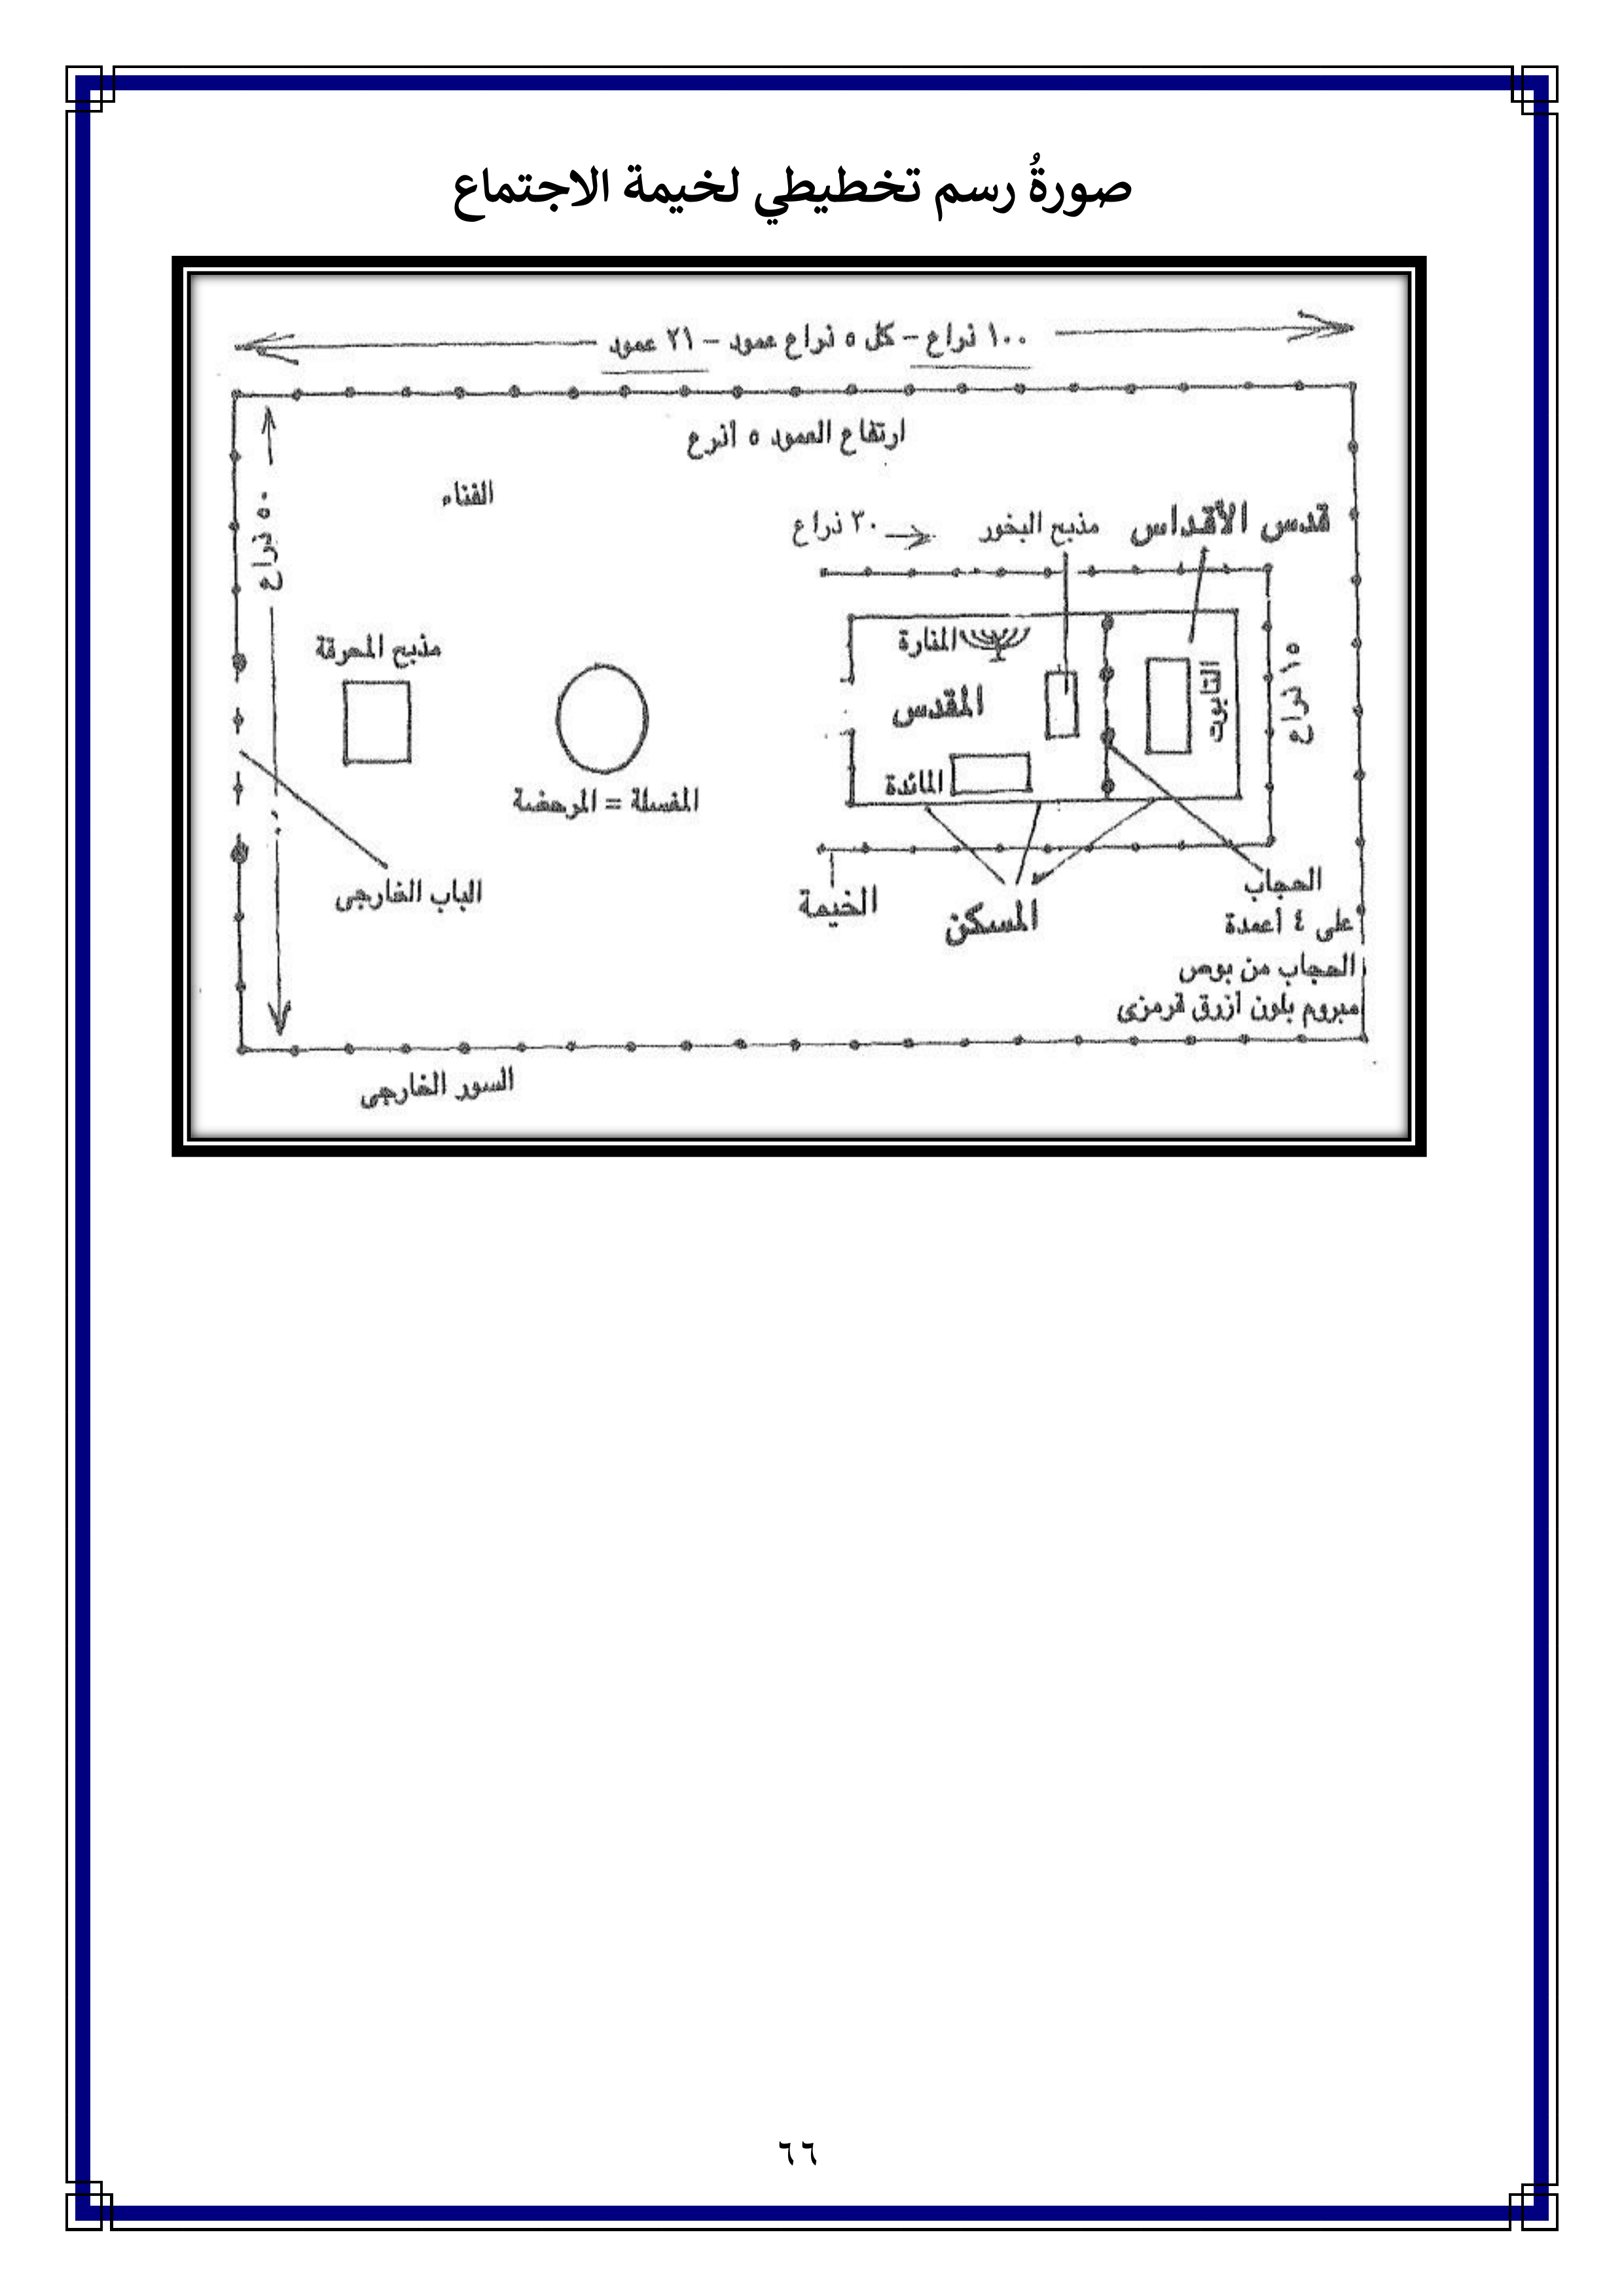 صورةُ رسم تخطيطي لخيمة الاجتماع
١٠٠ ذراع – كل ٥ ذراع عمود – ٢١ عمود
ارتفاع العمود ٥ أذرع
الفناء
٥٠ ذراع
قدس الأقداس
مذبح البخور
٣٠ ذراع
مذبح المحرقة
المنارة
المقدس
التابوت
١٥ ذراع
المائدة
المغسلة = المرحضة
الباب الخارجى
الخيمة
المسكن
الحجاب
على ٤ أعمدة
الحجاب من بوص
مبروم بلون أزرق قرمزى
السور الخارجى
٦٦